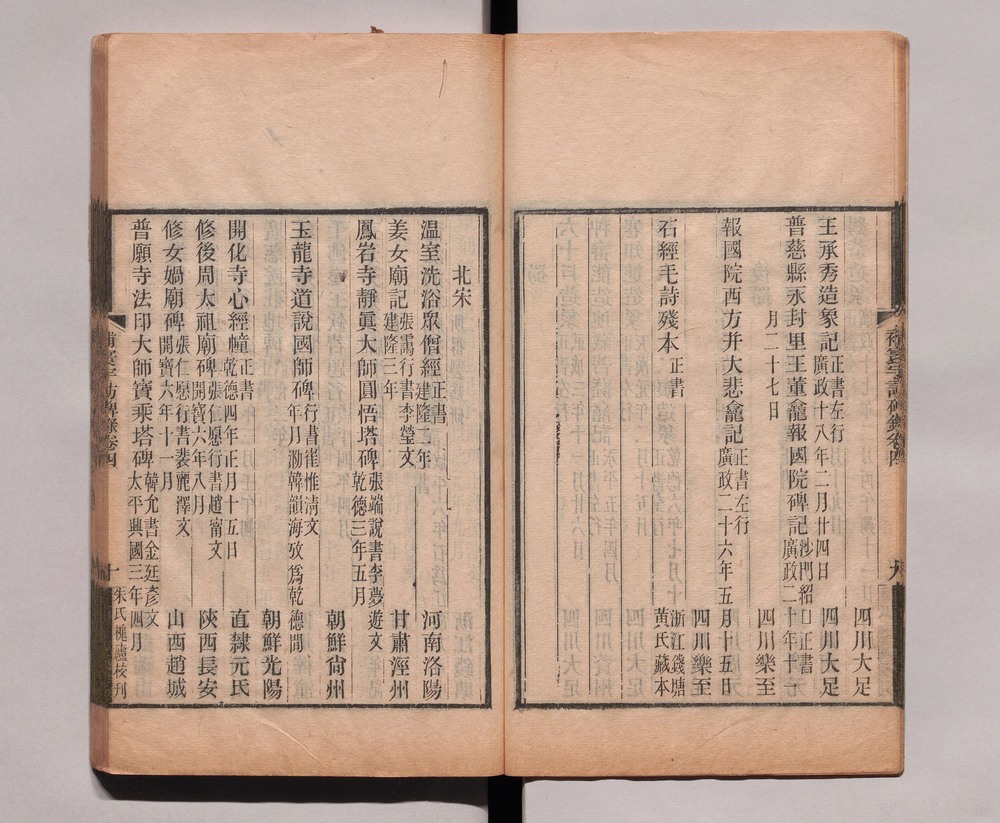 四川大足
王承秀造象記 正書左行
廣政十八年二月廿四日 四川大足
普慈縣永封里王董龕報國院碑記 沙門紹□正書
廣政二十年十
月二十七日 四川樂至
報國院西方并大悲龕記 正書左行
廣政二十六年五月十五日
四川樂至
石經毛詩殘本 正書 浙江錢塘
黃氏藏本
北宋
温室洗浴眾僧經 正書
建隆二年 河南洛陽
姜女廟記 張靄行書李瑩文
建隆三年 甘肅涇州
鳳岩寺靜眞大師圓悟塔碑 張端說書李夢遊文
乾德三年五月
朝鮮尙州
玉龍寺道說國師碑 行書崔惟淸文
年月泐韓韻海攷爲乾德間
朝鮮光陽
開化寺心經幢 正書
乾德四年正月十五日 直隸元氏
修後周太祖廟碑 張仁愿行書趙甯文
開寶六年八月 陝西長安
修女媧廟碑 張仁愿行書裴麗澤文
開寶六年十一月 山西趙城
普願寺法印大師寶乘塔碑 韓允書金廷彥文
太平興國三年四月
補寰宇訪碑錄卷四 十 朱氏槐廬校刊